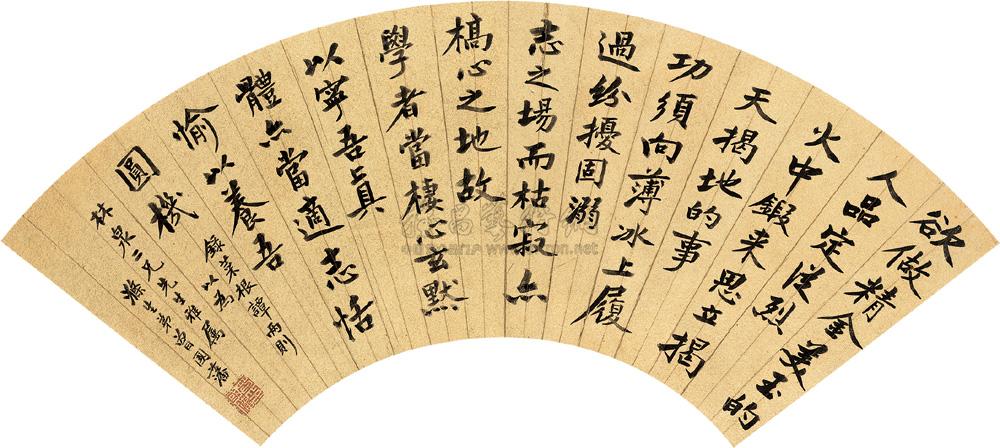 欲做精金美玉的
人品定從烈
火中鍛來思立揭
天揭地的事
功須向薄冰上履
過紛擾固溺
志之場而枯寂亦
槁心之地故
學者當棲心玄默
以寧吾真
體亦當適志恬
愉以養吾
圓機
錄菜根譚兩則
以為
林泉三兄先生雅屬
滌生弟曾國藩